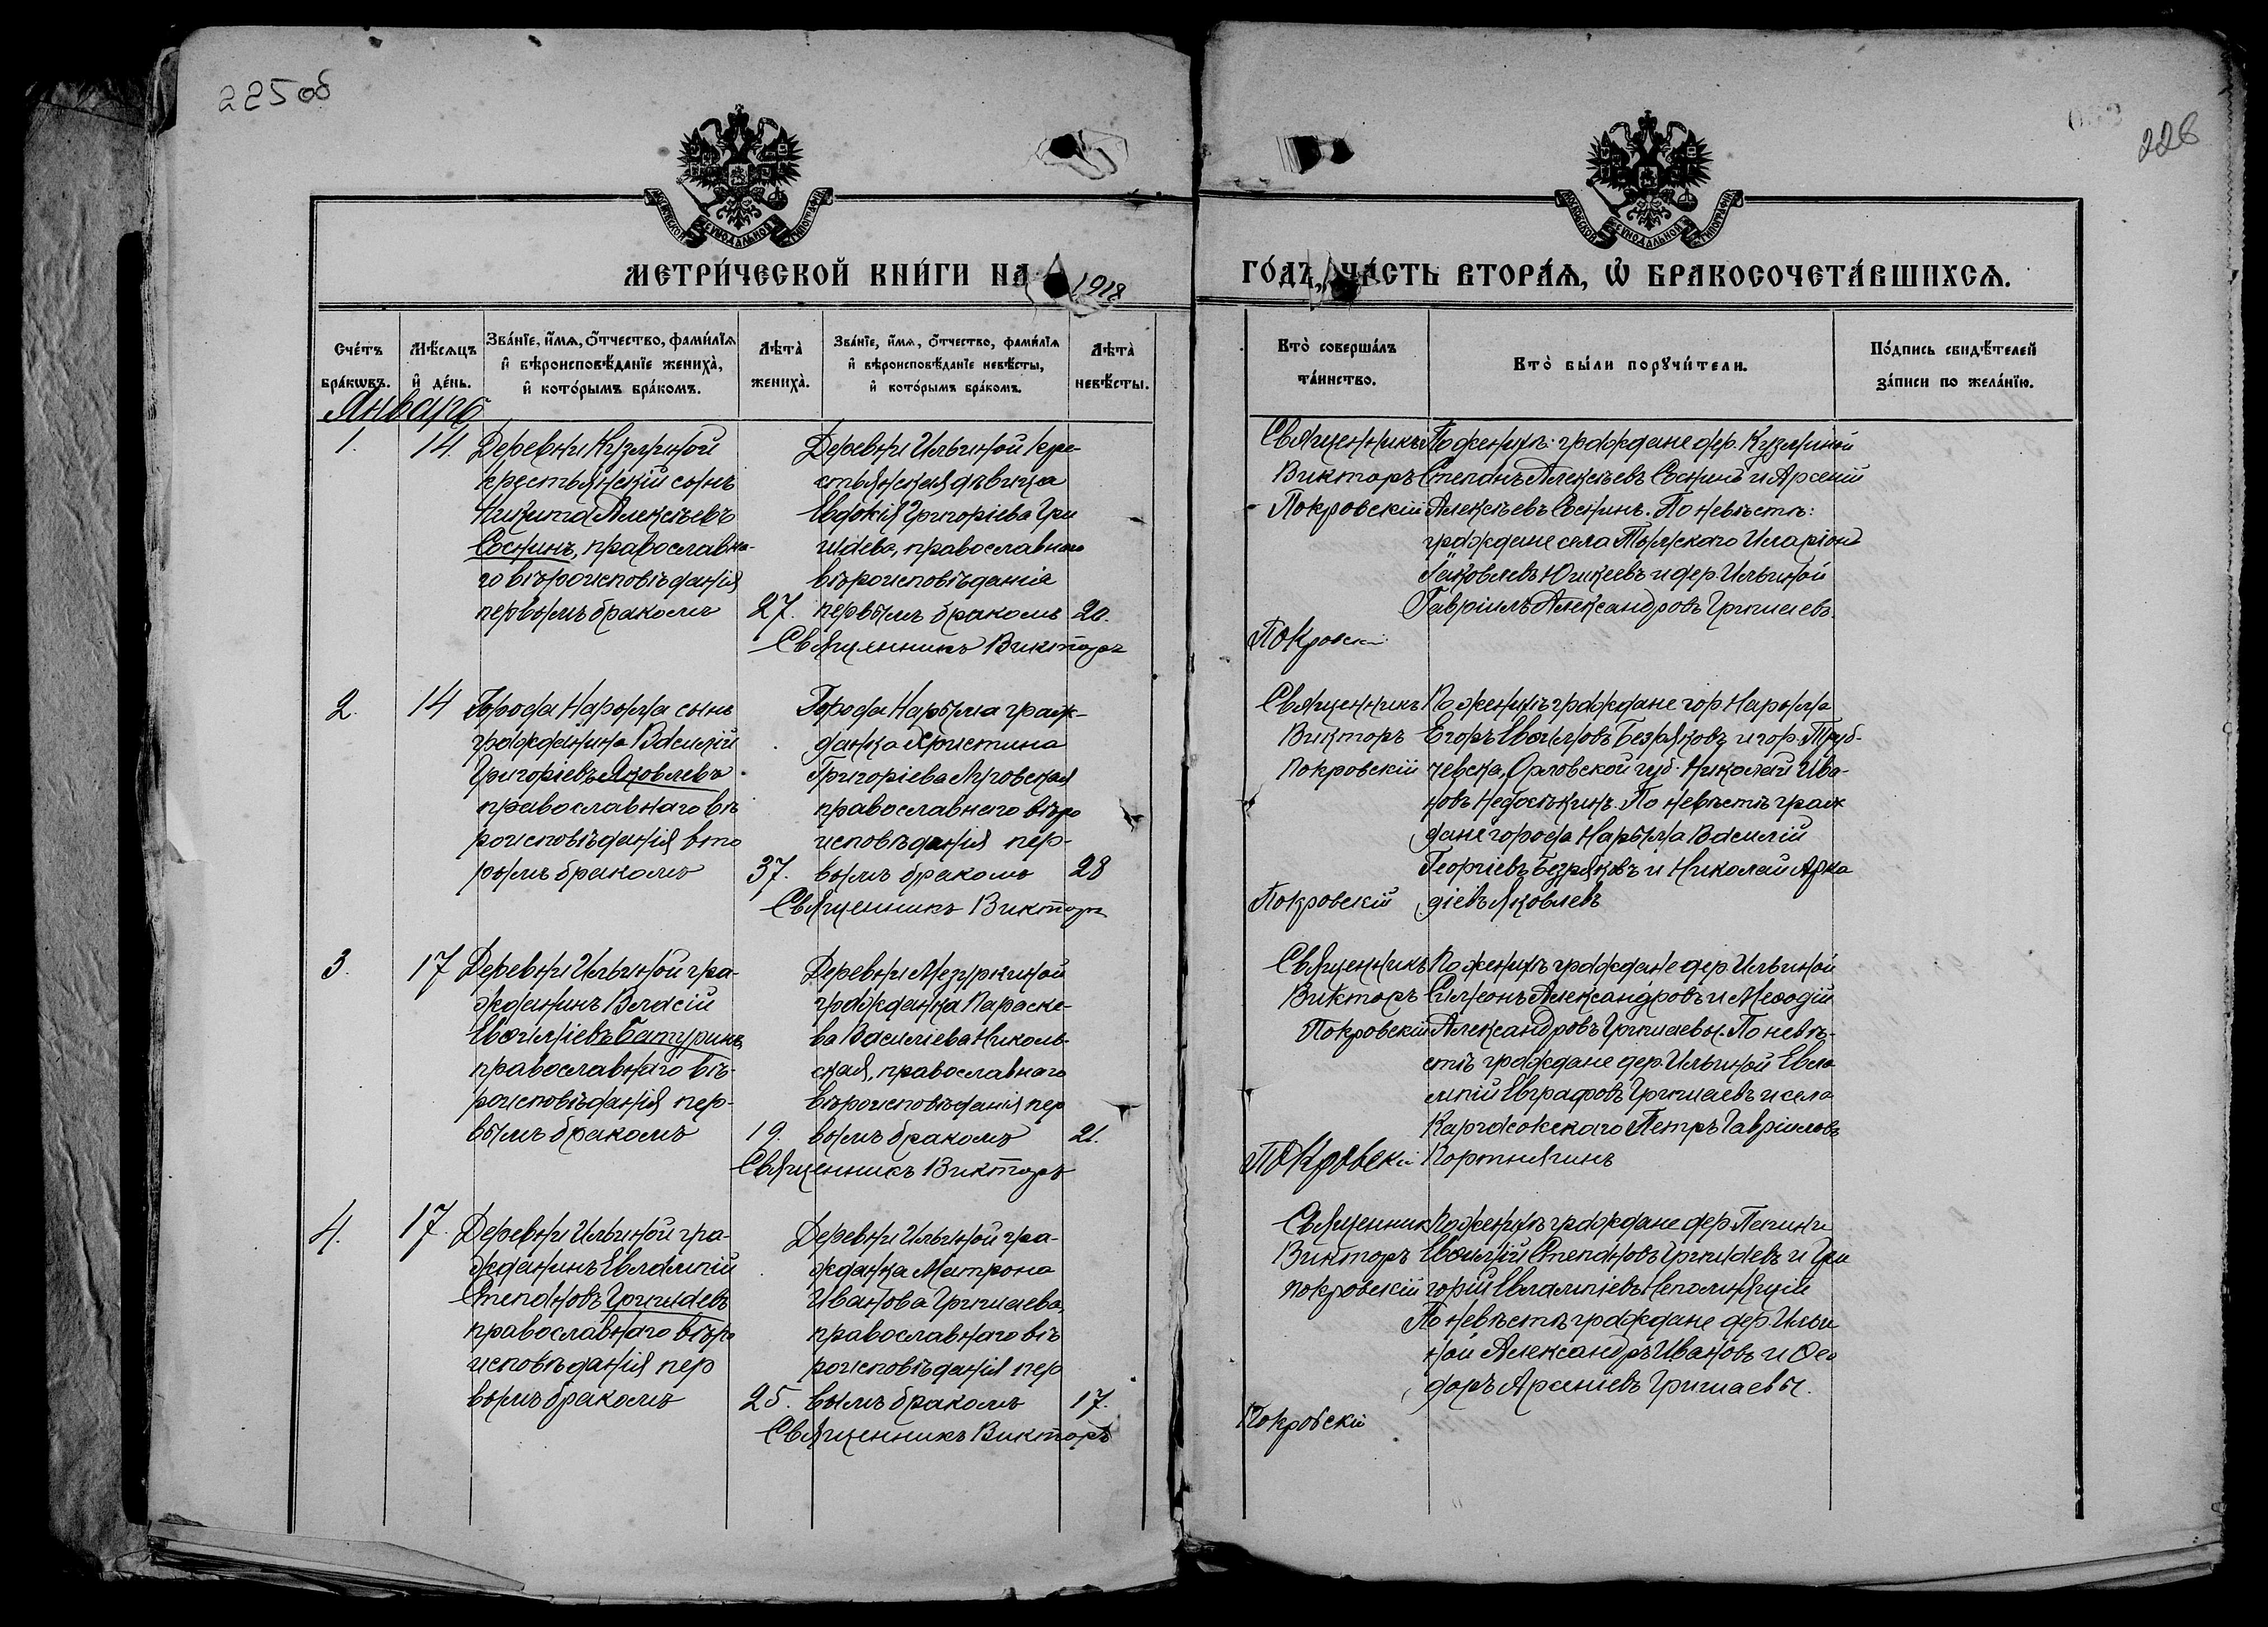 225об
228
МЕТРИ́ЧЕСКОЙ КНИ́ГИ НА 1918
ГО́ДЪ, ЧА́СТЬ ВТОРА́Я, Ѡ҆ БРАКОСОЧЕТА́ВШИХСЯ.
Сче́тъ бра́кωвъ.
Мѣ́сяцъ и҆ де́нь.
Зва́нїе, и҆́мѧ, ѻ҆́тчество, фами́лїѧ
и҆ вѣроисповѣ́данїе жениха̀,
и҆ кото́рымъ бра́комъ.
Лѣта̀ жениха̀.
Зва́нїе, и҆́мѧ, ѻ҆́тчество, фами́лїѧ
и҆ вѣроисповѣ́данїе невѣ́сты,
и҆ кото́рымъ бра́комъ.
Лѣта̀ невѣ́сты.
Кто̀ соверша́лъ
та́инство.
Кто̀ бы́ли порꙋчи́тели.
По́дпись свидѣ́телей
за́писи по жела́нїю.
Январь
1.
14.
Деревни Кузминой
крестьянскій сынъ
Никита Алексѣевъ
Соснинъ, православна-
го вѣроисповѣданія
первымъ бракомъ
27.
Деревни Ильиной кре-
стьянская дѣвица
Евдокія Григоріева Гри
шаева, православнаго
вѣроисповѣданія
первымъ бракомъ
20.
Священникъ Викторъ
Священникъ
Викторъ
Покровскій
По женихѣ: граждане дер. Кузминой
Степанъ Алексѣевъ Соснинъ и Арсеній
Алексѣевъ Соснинъ. По невѣстѣ:
граждане села Тымскаго Иларіонъ
Яковлевъ Юшкеевъ и дер. Ильиной
Гавріилъ Александровъ Гришаевъ.
Покровскій
2.
14
Города Нарыма сынъ
гражданина Василій
Григоріевъ Яковлевъ
православнаго вѣ
роисповѣданія вто
рымъ бракомъ
37.
Города Нарыма граж-
данка Христина
Григоріева Луговская
православнаго вѣро
исповѣданія пер-
вымъ бракомъ
28
Священникъ Викторъ
Священникъ
Викторъ
Покровскій
По женихѣ граждане гор. Нарыма
Егоръ Евѳимовъ Безряковъ и гор. Труб-
чевска, Орловской губ. Николай Ива-
новъ Недосѣкинъ. По невѣстѣ граж
дане города Нарыма Василій
Георгіевъ Безряковъ и Николай Арка
діевъ Яковлевъ
Покровскій
3.
17
Деревни Ильиной гра-
жданинъ Власій
Евѳиміевъ Батуринъ,
православнаго вѣ-
роисповѣданія пер-
вымъ бракомъ
19.
Деревни Мезуркиной
гражданка Параске-
ва Василіева Николь-
ская, православнаго
вѣроисповѣданія пер
вымъ бракомъ
21.
Священникъ Викторъ
Священникъ
Викторъ
Покровскій
По женихѣ граждане дер. Ильиной
Симеонъ Александровъ и Меѳодій
Александровъ Гришаевы. По невѣ-
стѣ граждане дер. Ильиной Евла
мпій Евграфовъ Гришаевъ и села
Каргасокскаго Петръ Гавріиловъ
Портнягинъ
Покровскій
4.
17.
Деревни Ильиной гра-
жданинъ Евлампій
Степановъ Гришаевъ
православнаго вѣро
исповѣданія пер
вымъ бракомъ
25.
Деревни Ильиной гра-
жданка Матрона
Иванова Гришаева,
православнаго вѣ
роисповѣданія пер
вымъ бракомъ
17.
Священникъ Викторъ
Священникъ
Викторъ
Покровскій
По женихѣ граждане дер.
Евѳимій Степановъ Гришаевъ и Гри
горій Евлампіевъ Непомнящій
По невѣстѣ граждане дер. Ильи
ной Александръ Ивановъ и Ѳео
доръ Арсеніевъ Гришаевы.
Покровскій